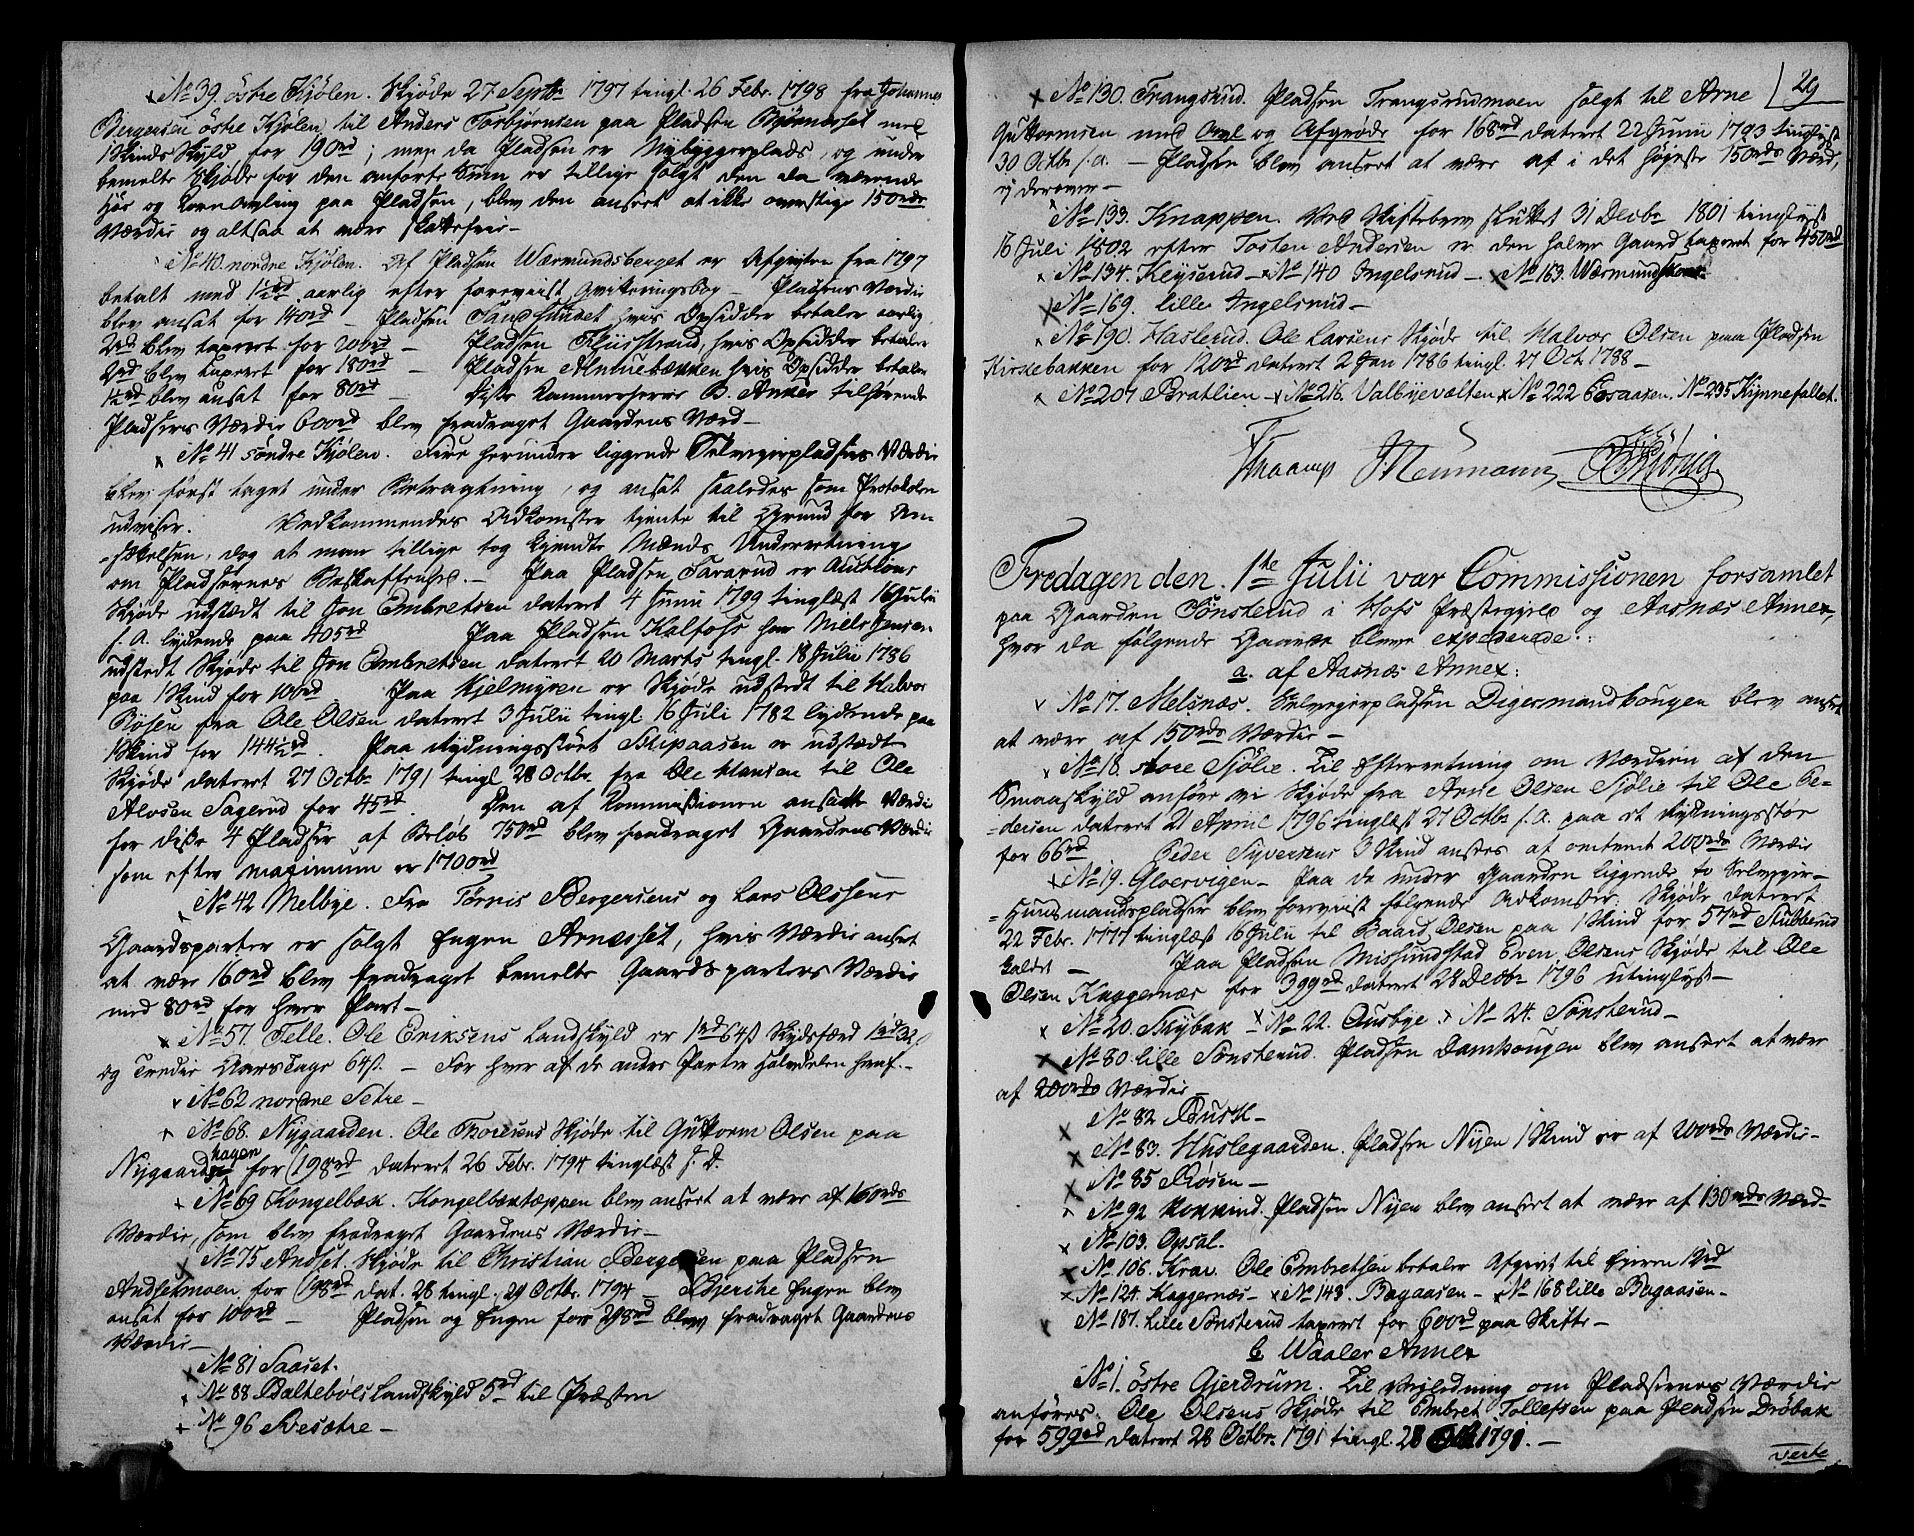 No 39. östre Kjölen. Skjöde 27 Septbr 1797 tingl. 26 Febr. 1798 fra Johannes
Bergersen östre Kjölen til Anders Torbjörnsen paa Pladsen Björneset med
1 Skinds Skyld for 190rd; men da Pladsen er Nybyggerplads, og under
bemelte Skjöde for den anförte Sum er tillige solgt den da værende
Höe og Korn Avling paa Pladsen, blev den anseet at ikke overstige 150rds
Værdie og altsaa at være skattefrie.
No 40. nordre Kjölen. Af Pladsen Wærmundsberget er Afgivten fra 1797
betalt med 1½rd aarlig efter foreviist Qvitteringsbog – Pladsens Værdie
blev ansat for 140rd – Pladsen Tandsundet hvis Opsidder betaler aarlig
2rd blev taxeret for 200rd – Pladsen Fluistrand, hvis Opsidder betaler
2rd blev taxeret for 180rd – Pladsen Almuebækken hvis Opsidder betaler
1½rd blev ansat for 80rd – Disse Kammerherre B. Anker tilhörende
Pladsers Værdie 600rd blev fradraget Gaardens Værd –
No 41 söndre Kjölen. Fire herunder liggende Selveierpladsers Værdie
blev först taget under Betragtning, og ansat saaledes som Protokolen
udviser. Vedkommendes Adkomster tjente til Grund for An-
-sættelsen, dog at man tillige tog kjendte Mænds Underretning
om Pladsernes Beskaffenhed. – Paa Pladsen Tararud er Auctions
Skjöde udstædt til Jon Embretsen dateret 4 Junii 1799 tinglæst 16 Julii
s. A. lydende paa 405rd Paa Pladsen Kalfoss har Niels Jensen
udstedt Skjöde til Jon Embretsen dateret 20 Marts tingl. 18 Julii 1786
paa 1 Skind for 100rd. Paa Kjelmyren er Skjöde udstedt til Halvor
Bosen fra Ole Olsen dateret 3 Julii tingl. 16 Juli 1782 lydende paa
1 Skind for 144½rd. Paa Rydningsstöret Stipaasen er udstædt
Skjöde dateret 27 Octbr 1791 tingl. 28 Octbr. fra Ole Hansen til Ole
Alvsen Sagerud for 45rd. Den af Kommissionen ansatte Værdie
for disse 4 Pladser af Belöb 750rd blev fradraget Gaardens Værdie
som efter maximum er 1700rd
No 42 Melbye. Fra Törnis Bergersens og Lars Olssens
Gaardsparter er solgt Engen Arneset, hvis Værdie anseet
at være 160rd blev fradraget bemelte Gaards parters Værdie
med 80rd for hver Part –
No 57. Felle. Ole Eriksens Landskyld er 1rd 64s Rydsfærd 1rd 32s
og Tredie Aars Tage 64s. – For hver af de andre Parter Halvdelen heraf. –
No 62 nordre Setre –
No 68. Nygaarden. Ole Thoresens Skjöde til Guttorm Olsen paa
Nygaards hagen for 198rd dateret 26 Febr. 1794 tinglæst s. D.
No 69 Kongelbæk. Kongelbæktæppen blev anseet at være af 160rds
Værdie, som blev fradraget Gaardens Værdie –
No 75 Andset. Skjöde til Christian Bergersen paa Pladsen
Andsetmoen for 198rd dat. 28 tingl. 29 Octbr. 1794 – Bjerche Engen blev
ansat for 100rd – Pladsen og Engen for 298rd blev fradraget Gaardens
Værdie –
No 81 Saaset.
No 88 Balteböls Landskyld 5rd til Præsten
No 96 Svesætre –
29
No 130. Trangsrud. Pladsen Trangsrudmoen solgt til Arne
Guttormsen med Avl og Afgröde for 168rd dateret 22 Junii 1793 tinglyst
30 Octbr s. a. – Pladsen blev anseet at være af i det höjeste 150rds Værd,
ej derover –
No 133. Knappen. Ved Skiftebrev sluttet 31 Decbr 1801 tinglyst
16 Juli 1802 efter Tosten Andersen er den halve Gaard taxeret for 450rd
No 134. Keyserud – No 140 Ingelsrud – No 163. Wærmundsmoe
No 169. lille Ingelsrud –
No 190. Hasterud. Ole Larsens Skjöde til Halvor Olsen paa Pladsen
Kirkebakken for 120rd dateret 2 Jan 1786 tingl. 27 Oct. 1788 –
No 207 Bratlien – No 216. Valbyevolten No 222 Eosaasen. No 235 Kynnefallet.
Thaarup Neumann
Fredagen den 1te Julii var Commissionen forsamlet
paa Gaarden Sönsterud i Hofs Præstegjeld og Aasnæs Annex,
hvor da fölgende Gaarde bleve expederede:
a. af Aasnæs Annex:
No 17. Melsnæs. Selveierpladsen Digermandhougen blev anseet
at være af 150rds Værdie –
No 18. store Sjölie. Til Efterretning om Værdien af den
Smaaskyld anföre vi Skjöde fra Arne Olsen Sjölie til Ole Pe-
-dersen dateret 21 April 1796 tinglæst 27 Octbr s. a. paa et Rydningsstör
for 66rd Peder Syversens 3 Skind ansees at omtrent 200rds Værdie
No 19. Gloervigen – Paa de under Gaarden liggende to Selveier-
-Huusmandspladser blev foreviist fölgende Adkomster: Skjöde dateret
22 Febr. 1777 tinglæst 16 Julii til Baard Olsen paa 1 Skind for 57rd Stubberud
kaldet – Paa Pladsen Missundstad Even Olsens Skjöde til Ole
Olsen Kaggernæs for 399rd dateret 28 Decbr 1796 utinglyst –
No 20. Skybak – No 22. Ausbye. No 24. Sönsterud –
No 80. lille Sönsterud. Pladsen Damhougen blev anseet at være
af 200rds Værdie –
No 82 Busk –
No 83. Huslegaarden. Pladsen Nyen 1 Skind er af 200rds Værdie –
No 85 Rösen –
No 92 Kokkind. Pladsen Nyen blev anseet at være af 130rds Værd –
No 103. Opsal.
No 106. Krar. Ole Embretsen betaler Afgivt til Eieren 12rd
No 124. Kaggernæs – No 143. Bagaasen – No 168 lille Bagaasen –
No 187. Lille Sönsterud taxeret for 600rd paa Skifte –
b Waaler Annex
No 1. östre Gjerdrum. Til Veiledning om Pladsernes Værdie
anföres: Ole Olsens Skjöde til Embret Tollefsen paa Pladsen Dröbak
for 599rd dateret 28 Octbr. 1791 tingl. 28 Oct. 1791. –
verte